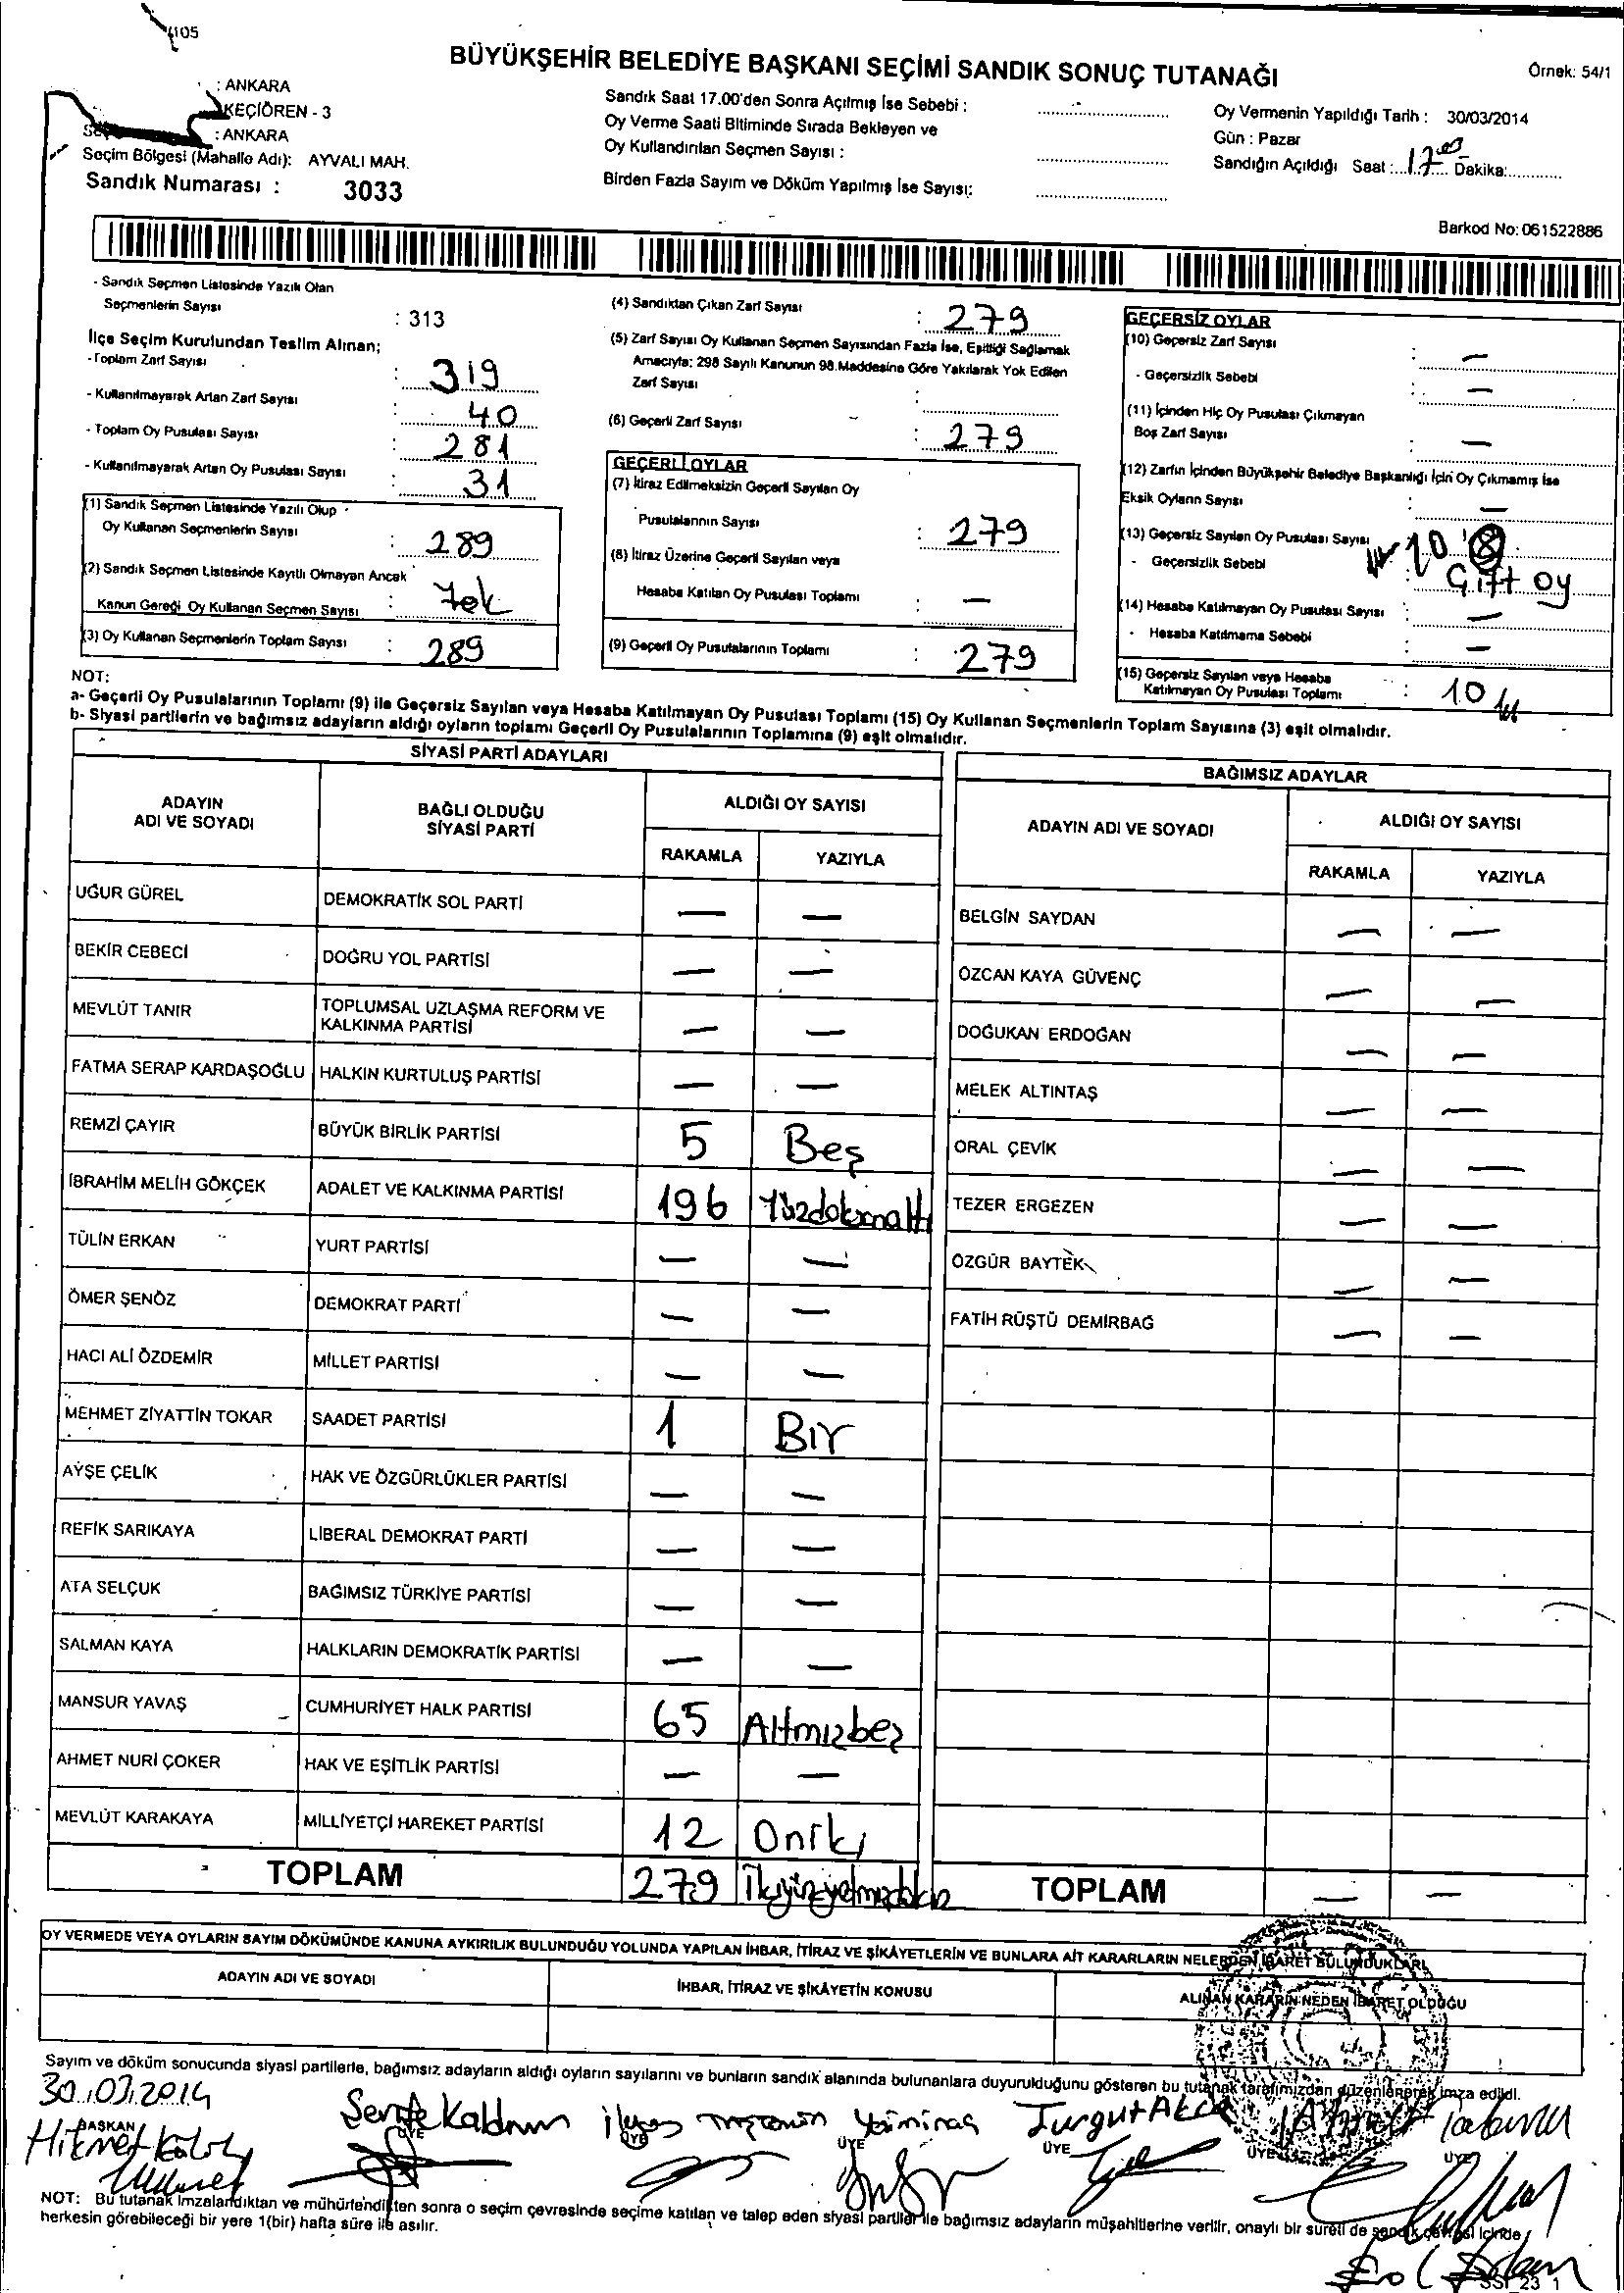 4105
BÜYÜKŞEHİR BELEDİYE BAŞKANI SEÇİMİ SANDIK SONUÇ TUTANAĞI
Örnek: 54/1
: ANKARA
KEÇİÖREN - 3
: ANKARA
Seçim Bölgesi (Mahalle Adı): AYVALI MAH.
Sandık Numarası : 3033
Sandık Saat 17.00'den Sonra Açılmış İse Sebebi :
Oy Verme Saati Bitiminde Sırada Bekleyen ve
Oy Kullandırılan Seçmen Sayısı :
Birden Fazla Sayım ve Döküm Yapılmış İse Sayısı:
Oy Vermenin Yapıldığı Tarih : 30/03/2014
Gün : Pazar
Sandığın Açıldığı Saat : 17 00 Dakika:
Barkod No: 061522886
- Sandık Seçmen Listesinde Yazılı Olan
Seçmenlerin Sayısı : 313
İlçe Seçim Kurulundan Teslim Alınan;
- Toplam Zarf Sayısı : 319
- Kullanılmayarak Artan Zarf Sayısı : 40
- Toplam Oy Pusulası Sayısı : 281
- Kullanılmayarak Artan Oy Pusulası Sayısı : 31
(1) Sandık Seçmen Listesinde Yazılı Olup
Oy Kullanan Seçmenlerin Sayısı : 289
(2) Sandık Seçmen Listesinde Kayıtlı Olmayan Ancak
Kanun Gereği Oy Kullanan Seçmen Sayısı : Yok
(3) Oy Kullanan Seçmenlerin Toplam Sayısı : 289
(4) Sandıktan Çıkan Zarf Sayısı : 279
(5) Zarf Sayısı Oy Kullanan Seçmen Sayısından Fazla İse, Eşitliği Sağlamak
Amacıyla: 298 Sayılı Kanunun 98.Maddesine Göre Yakılarak Yok Edilen
Zarf Sayısı :
(6) Geçerli Zarf Sayısı : 279
GEÇERLİ OYLAR
(7) İtiraz Edilmeksizin Geçerli Sayılan Oy
Pusulalarının Sayısı : 279
(8) İtiraz Üzerine Geçerli Sayılan veya
Hesaba Katılan Oy Pusulası Toplamı : —
(9) Geçerli Oy Pusulalarının Toplamı : 279
GEÇERSİZ OYLAR
(10) Geçersiz Zarf Sayısı : —
- Geçersizlik Sebebi : —
(11) İçinden Hiç Oy Pusulası Çıkmayan
Boş Zarf Sayısı : —
(12) Zarfın İçinden Büyükşehir Belediye Başkanlığı İçin Oy Çıkmamış İse
Eksik Oyların Sayısı : —
(13) Geçersiz Sayılan Oy Pusulası Sayısı : 10 8
- Geçersizlik Sebebi : Çift oy
(14) Hesaba Katılmayan Oy Pusulası Sayısı : —
- Hesaba Katılmama Sebebi : —
(15) Geçersiz Sayılan veya Hesaba
Katılmayan Oy Pusulası Toplamı : 10
NOT:
a- Geçerli Oy Pusulalarının Toplamı (9) ile Geçersiz Sayılan veya Hesaba Katılmayan Oy Pusulası Toplamı (15) Oy Kullanan Seçmenlerin Toplam Sayısına (3) eşit olmalıdır.
b- Siyasi partilerin ve bağımsız adayların aldığı oyların toplamı Geçerli Oy Pusulalarının Toplamına (9) eşit olmalıdır.
SİYASİ PARTİ ADAYLARI
ADAYIN ADI VE SOYADI
BAĞLI OLDUĞU SİYASİ PARTİ
ALDIĞI OY SAYISI
RAKAMLA YAZIYLA
UĞUR GÜREL DEMOKRATİK SOL PARTİ — —
BEKİR CEBECİ DOĞRU YOL PARTİSİ — —
MEVLÜT TANIR TOPLUMSAL UZLAŞMA REFORM VE KALKINMA PARTİSİ — —
FATMA SERAP KARDAŞOĞLU HALKIN KURTULUŞ PARTİSİ — —
REMZİ ÇAYIR BÜYÜK BİRLİK PARTİSİ 5 Beş
İBRAHİM MELİH GÖKÇEK ADALET VE KALKINMA PARTİSİ 196 Yüzdoksanaltı
TÜLİN ERKAN YURT PARTİSİ — —
ÖMER ŞENÖZ DEMOKRAT PARTİ — —
HACI ALİ ÖZDEMİR MİLLET PARTİSİ — —
MEHMET ZİYATTİN TOKAR SAADET PARTİSİ 1 Bir
AYŞE ÇELİK HAK VE ÖZGÜRLÜKLER PARTİSİ — —
REFİK SARIKAYA LİBERAL DEMOKRAT PARTİ — —
ATA SELÇUK BAĞIMSIZ TÜRKİYE PARTİSİ — —
SALMAN KAYA HALKLARIN DEMOKRATİK PARTİSİ — —
MANSUR YAVAŞ CUMHURİYET HALK PARTİSİ 65 Altmışbeş
AHMET NURİ ÇOKER HAK VE EŞİTLİK PARTİSİ — —
MEVLÜT KARAKAYA MİLLİYETÇİ HAREKET PARTİSİ 12 Oniki
TOPLAM 279 İkiyüzyetmişdokuz
BAĞIMSIZ ADAYLAR
ADAYIN ADI VE SOYADI
ALDIĞI OY SAYISI
RAKAMLA YAZIYLA
BELGİN SAYDAN — —
ÖZCAN KAYA GÜVENÇ — —
DOĞUKAN ERDOĞAN — —
MELEK ALTINTAŞ — —
ORAL ÇEVİK — —
TEZER ERGEZEN — —
ÖZGÜR BAYTEK — —
FATİH RÜŞTÜ DEMİRBAĞ — —
TOPLAM — —
OY VERMEDE VEYA OYLARIN SAYIM DÖKÜMÜNDE KANUNA AYKIRILIK BULUNDUĞU YOLUNDA YAPILAN İHBAR, İTİRAZ VE ŞİKÂYETLERİN VE BUNLARA AİT KARARLARIN NELERDEN İBARET BULUNDUKLARI
ADAYIN ADI VE SOYADI
İHBAR, İTİRAZ VE ŞİKÂYETİN KONUSU
ALINAN KARARIN NEDEN İBARET OLDUĞU
Sayım ve döküm sonucunda siyasi partilerle, bağımsız adayların aldığı oyların sayılarını ve bunların sandık alanında bulunanlara duyurulduğunu gösteren bu tutanak tarafımızdan düzenlenerek imza edildi.
30.03.2014
BAŞKAN ÜYE ÜYE ÜYE ÜYE ÜYE ÜYE
Hikmet Turgut
NOT: Bu tutanak imzalandıktan ve mühürlendikten sonra o seçim çevresinde seçime katılan ve talep eden siyasi partiler ile bağımsız adayların müşahitlerine verilir, onaylı bir sureti de sandık çevresi içinde
herkesin görebileceği bir yere 1(bir) hafta süre ile asılır.